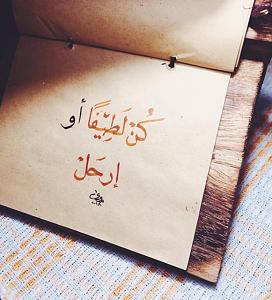 كُنْ لَطِيْفًا أو
إرحَلْ